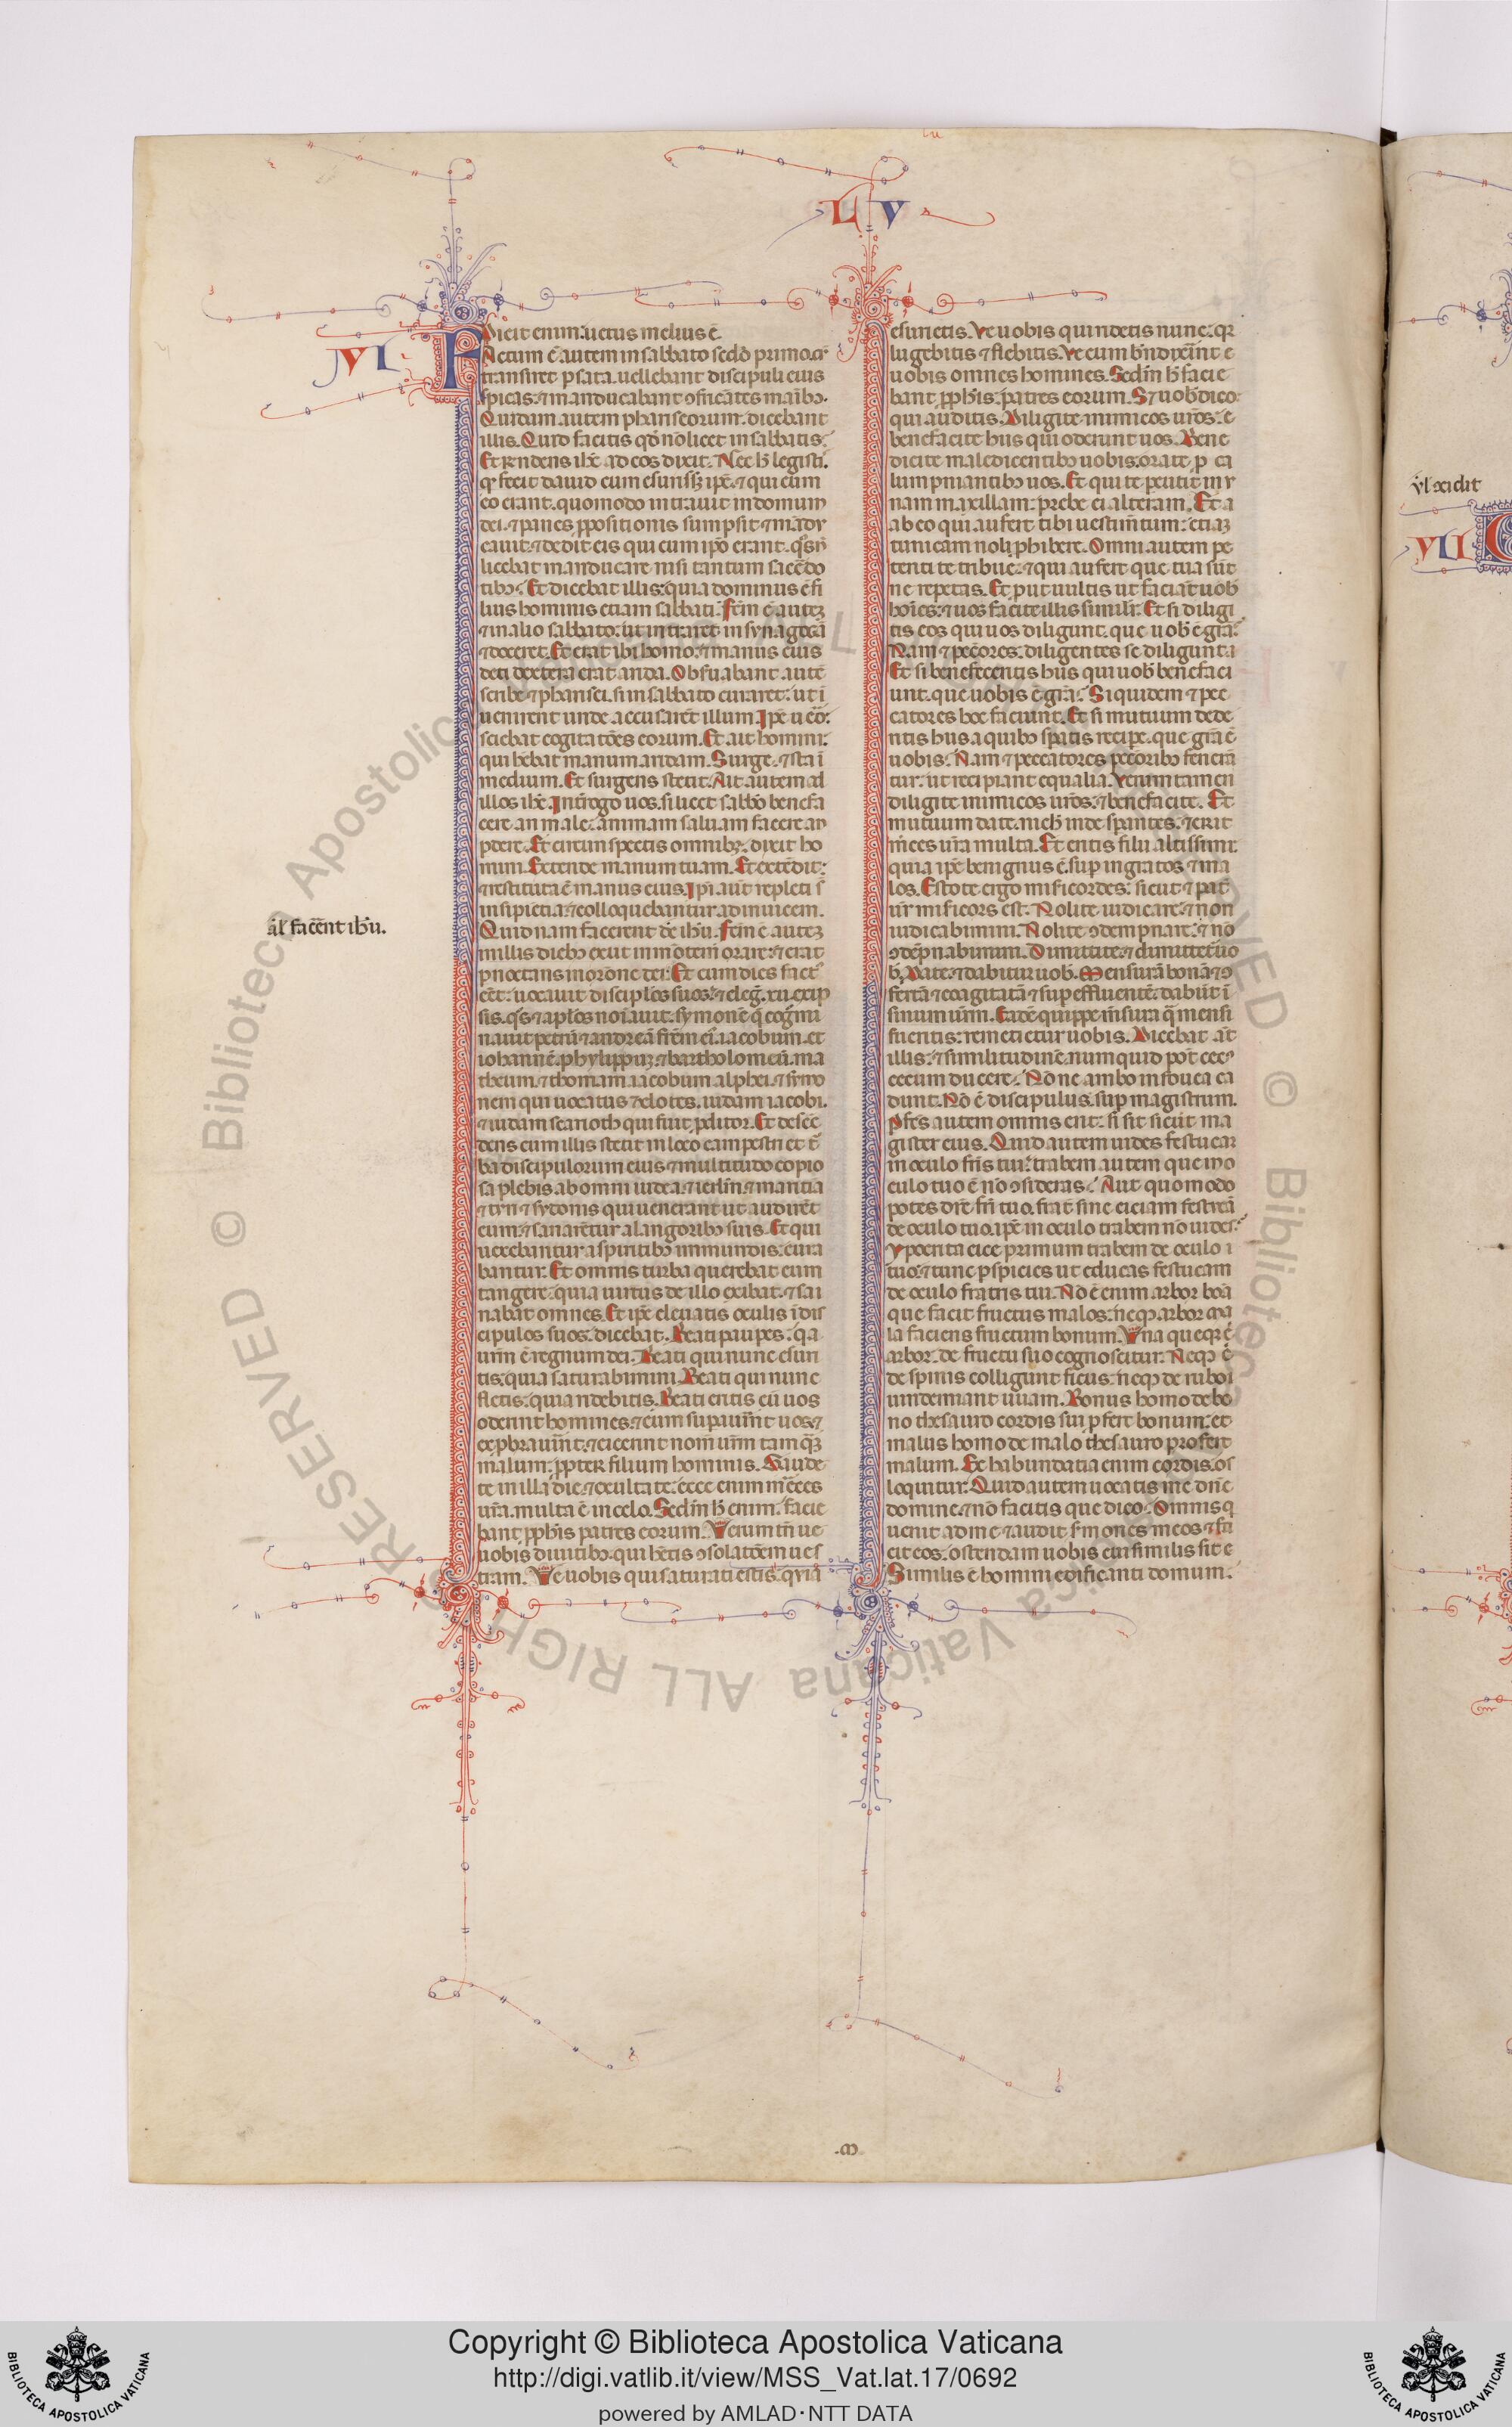 L V
VI
dicit enim: uetus melius ē.
Factum ē autem in sabbato scd̄o primo. cū
transiret p sata. uellebant discipuli eius
spicas: ⁊ manducabant ꝯfricātes manibꝫ.
Quidam autem phariseorum. dicebant
illis. Quid facitis qd̄ nō licet in sabbatis:
Et rn̄dens ihc̄ ad eos dixit. Nec h̄ legistis
q̄ fecit dauid cum esurissꝫ ip̄e. ⁊ qui cum
eo erant. quomodo intrauit in domum
dei. ⁊ panes p̄positionis sumpsit ⁊ mādu
cauit. ⁊ dedit eis qui cum ip̄o erant. q̄s nō
licebat manducare nisi tantum sacerdo
tibꝫ: Et dicebat illis: quia dominus ē fi
lius hominis etiam sabbati. Fcm̄ ē autē
⁊ in alio sabbato: ut intraret in synagogā
⁊ doceret. Et erat ibi homo: ⁊ manus eius
dextera erat arida. Obsuabant autē
scribe ⁊ pharisei. si in sabbato curaret: ut ī
uenirent unde accusarēt illum. Ip̄e ū
sciebat cogitatōes eorum. Et ait homini:
qui hēbat manum aridam. Surge. ⁊ sta ī
medium. Et surgens stetit. Ait autem ad
illos ihc̄. Int̄rogo uos. si licet sabbo benefa
cere an male: animam saluam facere an
pdere. Et circumspectis omnibꝫ. dixit ho
mini. Extende manum tuam. Et extēdit:
⁊ restituta ē manus eius. Ip̄i aūt repleti s̄
insipiētia: ⁊ colloquebantur ad inuicem.
al̄ facēnt ihū.
Quidnam facerent de ihū. Fcm̄ ē autē
in illis diebꝫ exiit in mōtem orare: ⁊ erat
pnoctans in orōne dei: Et cum dies fact'
cēt: uocauit discip̄los suos: ⁊ eleḡ. xii. ex ip
sis. q̄s ⁊ ap̄los noīauit: symonē q̄ cogm̄i
nauit petrū: ⁊ andreā frēm eī. iacobum. et
iohannē. phylippū. ⁊ bartholomeū. ma
theum. ⁊ thomam. iacobum alphei. ⁊ symo
nem qui uocatus zelotes. iudam iacobi.
⁊ iudam scarioth qui fuit p̄ditor. Et descē
dens cum illis stetit in loco campestri et t̄
ba discipulorum eius ⁊ multitudo copio
sa plebis ab omni iudea. ⁊ ierlm̄. ⁊ maritia
⁊ tyri ⁊ sydonis qui uenerant ut audirēt
eum: ⁊ sanarētur a langoribꝫ suis. Et qui
uexebantur a spiritibꝫ immundis: cura
bantur. Et omnis turba querebat eum
tangere: quia uirtus de illo exibat. ⁊ sa
nabat omnes. Et ip̄e eleuatis oculis ī dis
cipulos suos: dicebat. Beati paupes: q̄a
ur̄m ē regnum dei. Beati qui nunc esuri
tis: quia saturabimini. Beati qui nunc
fletis: quia ridebitis. Beati eritis cū uos
oderint homines: ⁊ cum sepauīnt uos: ⁊
exp̄brauīnt. ⁊ eicerint nom̄ ur̄m tamq̄ꝫ
malum: p̄pter filium hominis. Gaude
te in illa die. ⁊ exultate: ecce enim mērces
ur̄a. multa ē in celo. Sedm̄ h̄ enim. facie
bant pphis patres eorum. Verum tn̄ ue
uobis diuitibꝫ. qui hētis ꝯsolatōem ues
tram. Ve uobis qui saturati estis: quia
esurietis. Ve uobis qui ridetis nunc: qr̄
lugebitis ⁊ flebitis. Ve cum bn̄dixeīnt
uobis omnes homines. Sedm̄ h̄ facie
bant pphis: patres eorum. S; uob̄ dico:
qui auditis. Diligite inimicos ur̄os:
benefacite hiis qui oderunt uos. Bene
dicite maledicentibꝫ uobis. orate p ca
lumpniantibꝫ uos. Et qui te p̄cutit in
nam maxillam: prebe ei alteram. Et a
ab eo qui aufert tibi uestim̄tum: etiaꝫ
tunicam noli p̄hibere. Omni autem pe
tenti te tribue: ⁊ qui aufert que tua sūt
ne repetas. Et p̄ut uultis ut faciāt uob̄
hoīes: ⁊ uos facite illis similr̄. Et si diligi
tis eos qui uos diligunt. que uob̄ ē grā.
Nam ⁊ pec̄ores: diligentes se diligunt
Et si benefeceritis hiis qui uob̄ benefaci
unt. que uobis ē grā: Siquidem ⁊ pec
catores hoc faciunt. Et si mutuum dede
ritis hiis a quibꝫ spatis recipe. que grā ē
uobis: Nam ⁊ peccatores pec̄oribꝫ fenerā
tur: ut recipiant equalia. Verumtamen
diligite inimicos ur̄os: ⁊ benefacite. Et
mutuum date. nich̄ inde spantes. ⁊ erit
m̄ces ur̄a multa. Et eritis filii altissimi
quia ip̄e benignus ē. sup ingratos ⁊ ma
los. Estote ergo misicordes: sicut ⁊ pat̄
ur̄ misicors est. Nolite iudicare: ⁊ non
iudicabimini. Nolite ꝯdempnare: ⁊ nō
ꝯdēpnabimini. Dimittite: ⁊ dimittet̄ uo
b̄. Date: ⁊ dabitur uob̄. Mensurā bonā ⁊ ꝯ
fertā ⁊ coagitatā ⁊ supeffluentē: dabūt ī
sinum ur̄m. Eadē quippe m̄sura q̄ mensi
fueritis: remetietur uobis. Dicebat aūt
illis: ⁊ similitudinē. numquid pōt cec'
cecum ducere: Nōne ambo in fouea ca
dunt. Nō ē discipulus: sup magistrum.
Pfc̄s autem omnis erit: si sit sicut ma
gister eius. Quid autem uides festucam
in oculo fris tui: trabem autem que in o
culo tuo ē nō ꝯsideras: Aut quomodo
potes dr̄e fri tuo. frat̄ sine eiciam festucā
de oculo tuo. ip̄e in oculo trabem nō uides:
Ypocrita eice primum trabem de oculo
tuo: ⁊ tunc pspicies ut educas festucam
de oculo fratris tui. Nō ē enim arbor bona
que facit fructus malos: neqꝫ arbor ma
la faciens fructum bonum. Vna queqꝫ
arbor. de fructu suo cognoscitur. Neqꝫ
de spinis colligunt ficus: neqꝫ de rubo
uindemiant uuam. Bonus homo de bo
no thesauro cordis sui pfert bonum: et
malus homo de malo thesauro profert
malum. Ex habundātia enim cordis. os
loquitur. Quid autem uocatis me dn̄e
domine. ⁊ nō facitis que dico: Omnis q
uenit ad me ⁊ audit sm̄ones meos ⁊ fa
cit eos: ostendam uobis cui similis sit
Similis ē homini edificanti domum.
ul̄ cecidit
VII
Copyright © Biblioteca Apostolica Vaticana
http://digi.vatlib.it/view/MSS_Vat.lat.17/0692
powered by AMLAD·NTT DATA
BIBLIOTECA APOSTOLICA VATICANA
BIBLIOTECA APOSTOLICA VATICANA
© Biblioteca Apostolica Vaticana ALL RIGHTS RESERVED
© Biblioteca Apostolica Vaticana ALL RIGHTS RESERVED